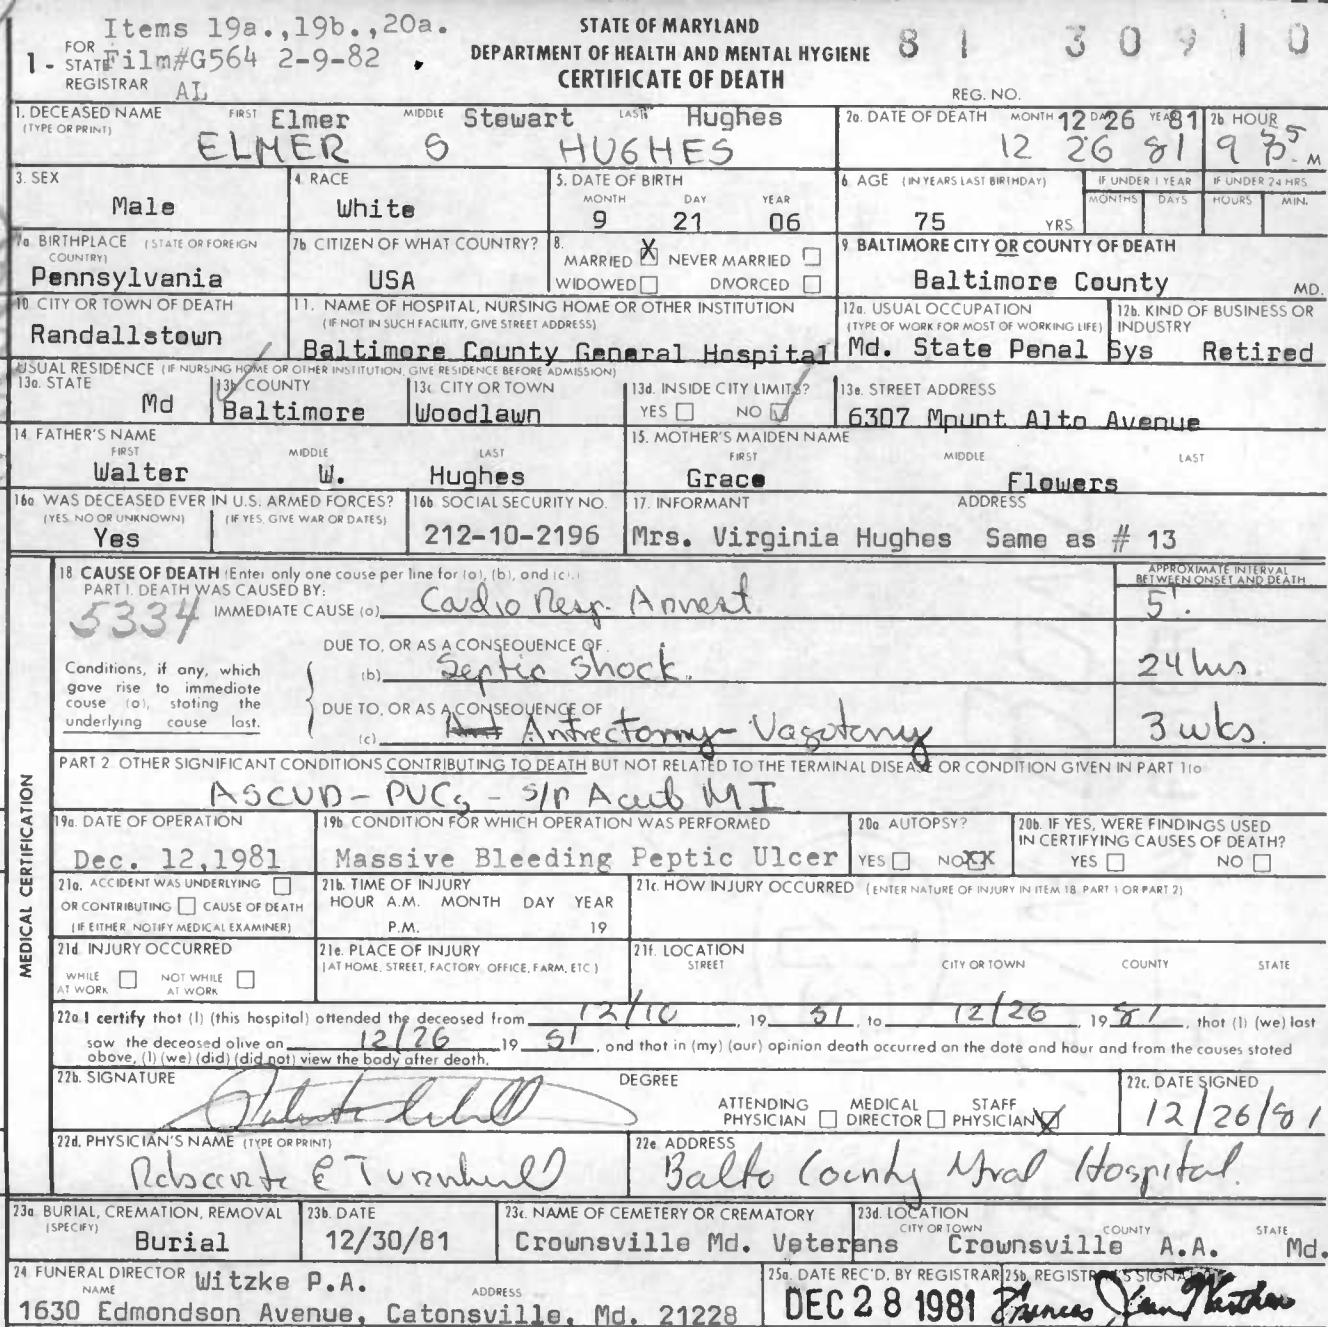 Items 19a.,19b.,20a.
1 - FOR STATE REGISTRAR Film#G564 2-9-82
AL
STATE OF MARYLAND
DEPARTMENT OF HEALTH AND MENTAL HYGIENE
CERTIFICATE OF DEATH
81 30910
REG. NO.
1. DECEASED NAME (TYPE OR PRINT) FIRST Elmer MIDDLE Stewart LAST Hughes
ELMER S HUGHES
2a. DATE OF DEATH MONTH 12 DAY 26 YEAR 81
12 26 81
2b HOUR
9 35 M
3. SEX
Male
4. RACE
White
5. DATE OF BIRTH
MONTH DAY YEAR
9 21 06
6. AGE (IN YEARS LAST BIRTHDAY)
75 YRS.
IF UNDER 1 YEAR
MONTHS DAYS
IF UNDER 24 HRS
HOURS MIN.
7a BIRTHPLACE (STATE OR FOREIGN COUNTRY)
Pennsylvania
7b CITIZEN OF WHAT COUNTRY?
USA
8.
MARRIED X NEVER MARRIED
WIDOWED DIVORCED
9. BALTIMORE CITY OR COUNTY OF DEATH
Baltimore County MD.
10. CITY OR TOWN OF DEATH
Randallstown
11. NAME OF HOSPITAL, NURSING HOME OR OTHER INSTITUTION
(IF NOT IN SUCH FACILITY, GIVE STREET ADDRESS)
Baltimore County General Hospital
12a. USUAL OCCUPATION
(TYPE OF WORK FOR MOST OF WORKING LIFE)
12b. KIND OF BUSINESS OR INDUSTRY
Md. State Penal Sys Retired
USUAL RESIDENCE (IF NURSING HOME OR OTHER INSTITUTION, GIVE RESIDENCE BEFORE ADMISSION)
13a. STATE
Md
13b COUNTY
Baltimore
13c CITY OR TOWN
Woodlawn
13d. INSIDE CITY LIMITS?
YES NO
13e. STREET ADDRESS
6307 Mpunt Alto Avenue
14. FATHER'S NAME
FIRST MIDDLE LAST
Walter W. Hughes
15. MOTHER'S MAIDEN NAME
FIRST MIDDLE LAST
Grace Flowers
16a WAS DECEASED EVER IN U.S. ARMED FORCES?
(YES, NO OR UNKNOWN) (IF YES, GIVE WAR OR DATES)
Yes
16b SOCIAL SECURITY NO.
212-10-2196
17. INFORMANT ADDRESS
Mrs. Virginia Hughes Same as # 13
18 CAUSE OF DEATH (Enter only one cause per line for (a), (b), and (c).)
PART I. DEATH WAS CAUSED BY:
APPROXIMATE INTERVAL BETWEEN ONSET AND DEATH
5334
IMMEDIATE CAUSE (a) Cardio Resp. Arrest 5'.
DUE TO, OR AS A CONSEQUENCE OF
(b) Septic Shock. 24 hrs
Conditions, if any, which
gave rise to immediate
cause (a), stating the
underlying cause last.
DUE TO, OR AS A CONSEQUENCE OF
(c) Antrectomy - Vagotomy 3 wks.
PART 2 OTHER SIGNIFICANT CONDITIONS CONTRIBUTING TO DEATH BUT NOT RELATED TO THE TERMINAL DISEASE OR CONDITION GIVEN IN PART 1(a
ASCVD - PVCs - S/P Acute MI
MEDICAL CERTIFICATION
19a. DATE OF OPERATION
Dec. 12,1981
19b CONDITION FOR WHICH OPERATION WAS PERFORMED
Massive Bleeding Peptic Ulcer
20a AUTOPSY?
YES NO XX
20b. IF YES, WERE FINDINGS USED
IN CERTIFYING CAUSES OF DEATH?
YES NO
21a. ACCIDENT WAS UNDERLYING
OR CONTRIBUTING CAUSE OF DEATH
(IF EITHER, NOTIFY MEDICAL EXAMINER)
21b. TIME OF INJURY
HOUR A.M. MONTH DAY YEAR
P.M. 19
21c. HOW INJURY OCCURRED (ENTER NATURE OF INJURY IN ITEM 18, PART 1 OR PART 2)
21d INJURY OCCURRED
WHILE AT WORK NOT WHILE AT WORK
21e. PLACE OF INJURY
(AT HOME, STREET, FACTORY, OFFICE, FARM, ETC)
21f. LOCATION
STREET CITY OR TOWN COUNTY STATE
22a I certify that (I) (this hospital) attended the deceased from 12/10, 19 81, to 12/26, 19 81, that (I) (we) last
saw the deceased alive on 12/26 19 81, and that in (my) (our) opinion death occurred on the date and hour and from the causes stated
above, (I) (we) (did) (did not) view the body after death.
22b. SIGNATURE DEGREE
ATTENDING PHYSICIAN MEDICAL DIRECTOR STAFF PHYSICIAN
22c. DATE SIGNED
12/26/81
22d. PHYSICIAN'S NAME (TYPE OR PRINT)
E Turnbull
22e. ADDRESS
Balto County Hospital.
23a BURIAL, CREMATION, REMOVAL
(SPECIFY)
Burial
23b. DATE
12/30/81
23c. NAME OF CEMETERY OR CREMATORY
Crownsville Md. Veterans
23d. LOCATION
CITY OR TOWN COUNTY STATE
Crownsville A.A. Md.
24 FUNERAL DIRECTOR Witzke P.A.
NAME ADDRESS
1630 Edmondson Avenue, Catonsville, Md. 21228
25a. DATE REC'D. BY REGISTRAR
DEC 28 1981
25b. REGISTRAR'S SIGNATURE